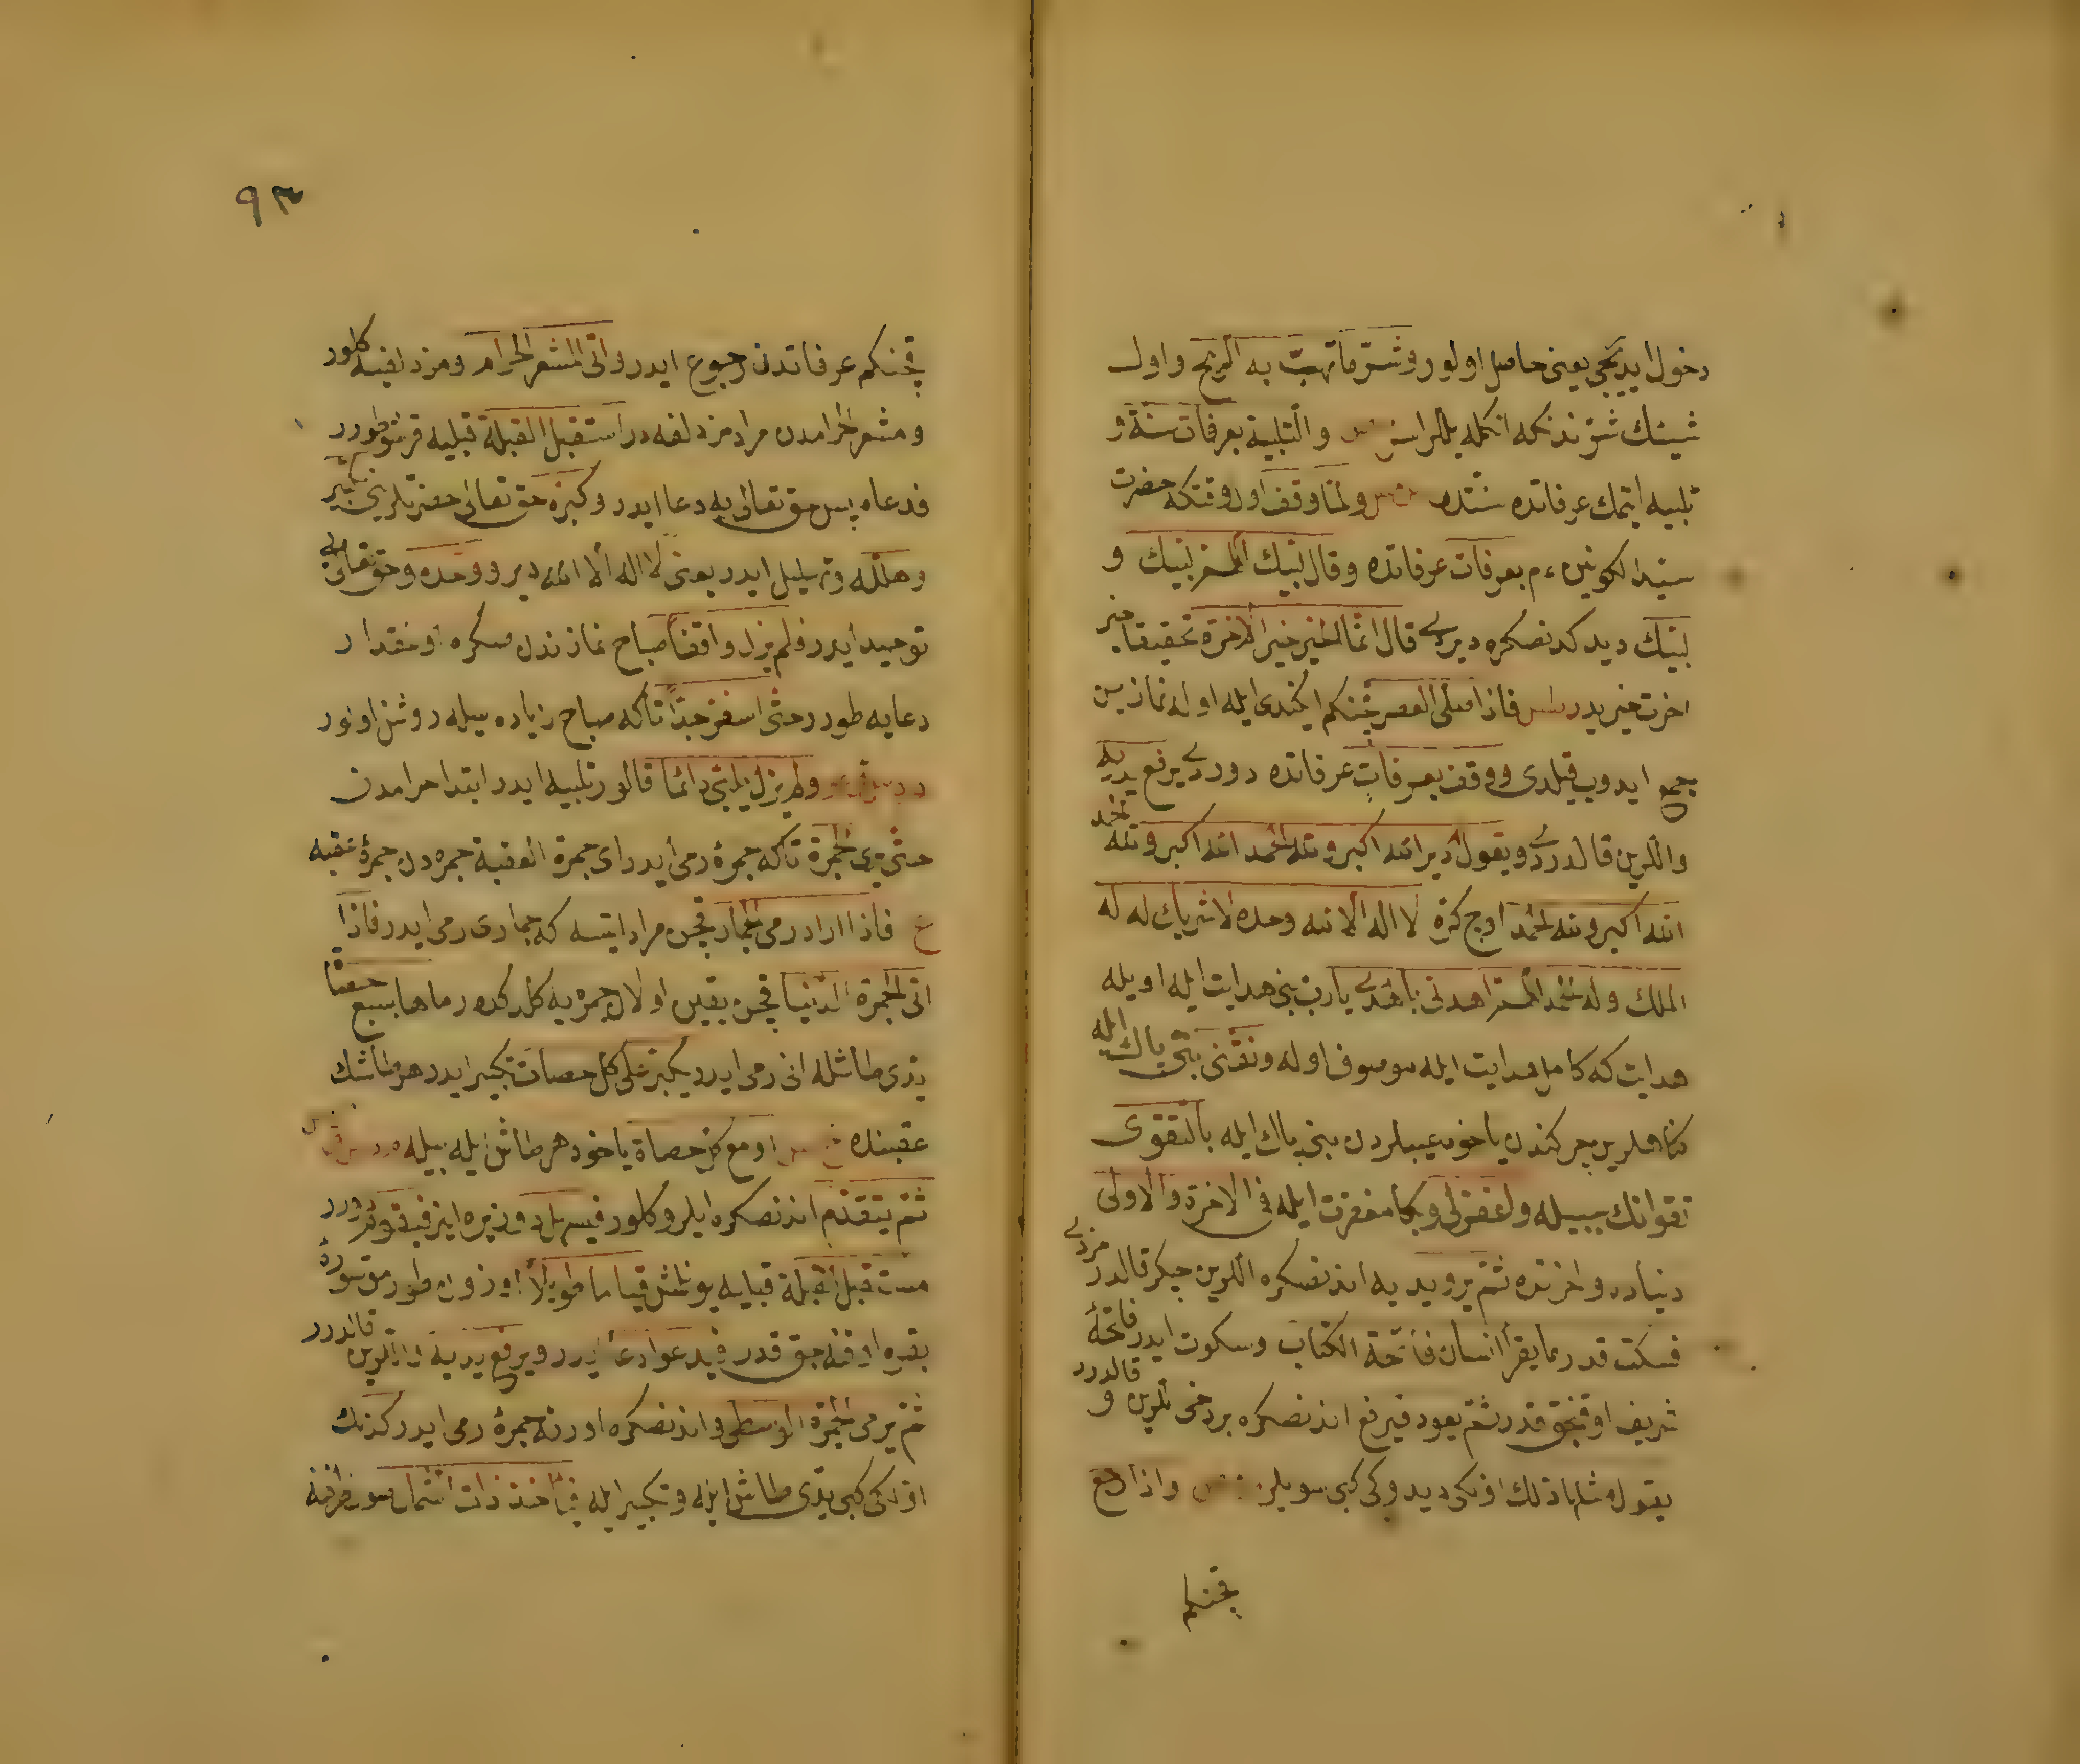 دخول ایدیجی یعنی حاصل اولور وشر ما تهب به الریح واول
شیئك شرندنکه انکله یللر اسر والتلبیة بعرفات سنة و
تلبیه ایتمك عرفاتده سنتدر ولما وقف اول وقتکه حضرت
سید الکونین ءم بعرفات عرفاتده وقال لبیك اللهم لبیك و
لبیك دیدکدنصکره دیردی قال انما الخیر خیر الاخرة تحقیقا خیر
اخرت خیریدر فاذا صلی العصر قچنکم ایکندی ایله اویله نمازین
جمع ایدوب قیلدی ووقف بعرفات عرفاتده دوردی یرفع یدیه
واللرین قالدردی ویقول دیر الله اکبر ولله الحمد الله اکبر ولله الحمد
الله اکبر ولله الحمد اوچ کره لا اله الا الله وحده لا شریك له له
الملك وله الحمد اللهم اهدنی بالهدی یا رب بنی هدایت ایله اویله
هدایت که کامل هدایت ایله موصوف اوله ونقنی بنی پاك ایله
کناهلرین چرکندن یاخود عیبلردن بنی پاك ایله بالتقوی
تقوانك سببیله واغفرلی وبکا مغفرت ایله فی الاخرة والاولی
دنیاده واخرتده ثم یرد یدیه اندنصکره اللرین چکر قالدرمزدی
فسکت قدر ما یقرأ انسان فاتحة الکتاب وسکوت ایدر فاتحهٔ
شریف اوقینجق قدر ثم یعود فیرفع اندنصکره بر دخی اللرین قالدرر و
یقول مثل ذلك اولکی دیدوکی کبی سویلر واذا رجع
قچنکم
۹۳
قچنکم عرفاتدن رجوع ایدر واتی المشعر الحرام ومزدلفیه کلور
ومشعر الحرامدن مراد مزدلفه در استقبل القبلة قبلیه قرشو طورر
فدعاه پس حق تعالی یه دعا ایدر وکبره حق تعالی حضرتلرینی تکبیر ایدر
وهلله وتهلیل ایدر یعنی لا اله الا الله دیر ووحده وحق تعالی یی
توحید ایدر فلم یزل واقفا صباح نمازندن صکره اول مقدار
دعایه طورر حتی اسفر جدا تا که صباح زیاده سیله روشن اولور
ولم یزل یلبی دائما قالور تلبیه ایدر ابتدا حرامدن
حتی یرمی الجمرة تا که جمرهٔ رمی ایدر ای جمرة العقبة جمره دن جمرهٔ عقبه
ع فاذا اراد رمی الجمار قچن مراد ایتسه که جماری رمی ایدر فاذا
اتی الجمرة الدنیا قچن یقین اولان جمره یه کلدکده رماها بسبع حصیات
یدی طاشله انی رمی ایدر ویکبر علی کل حصات تکبیر ایدر هر طاشك
عقبنده او مع کل حصاة یاخود هر طاش ایله بیله
ثم یتقدم اندنصکره ایلرو کلور فیسهل دوز یره اینر فیقوم دورر
مستقبل القبلة قبلیه یونلش قیاما طویلا اوزون طورمق سورهٔ
بقره اوقینجق قدر فیدعو ادعا ایدر ویرفع یدیه واللرین قالدرر
ثم یرمی الجمرة الوسطی واندنصکره اورته جمرهٔ رمی ایدر کذلك
اولکی کبی یدی طاش ایله وتکبیر ایله فیأخذ ذات الشمال صول طرفنه